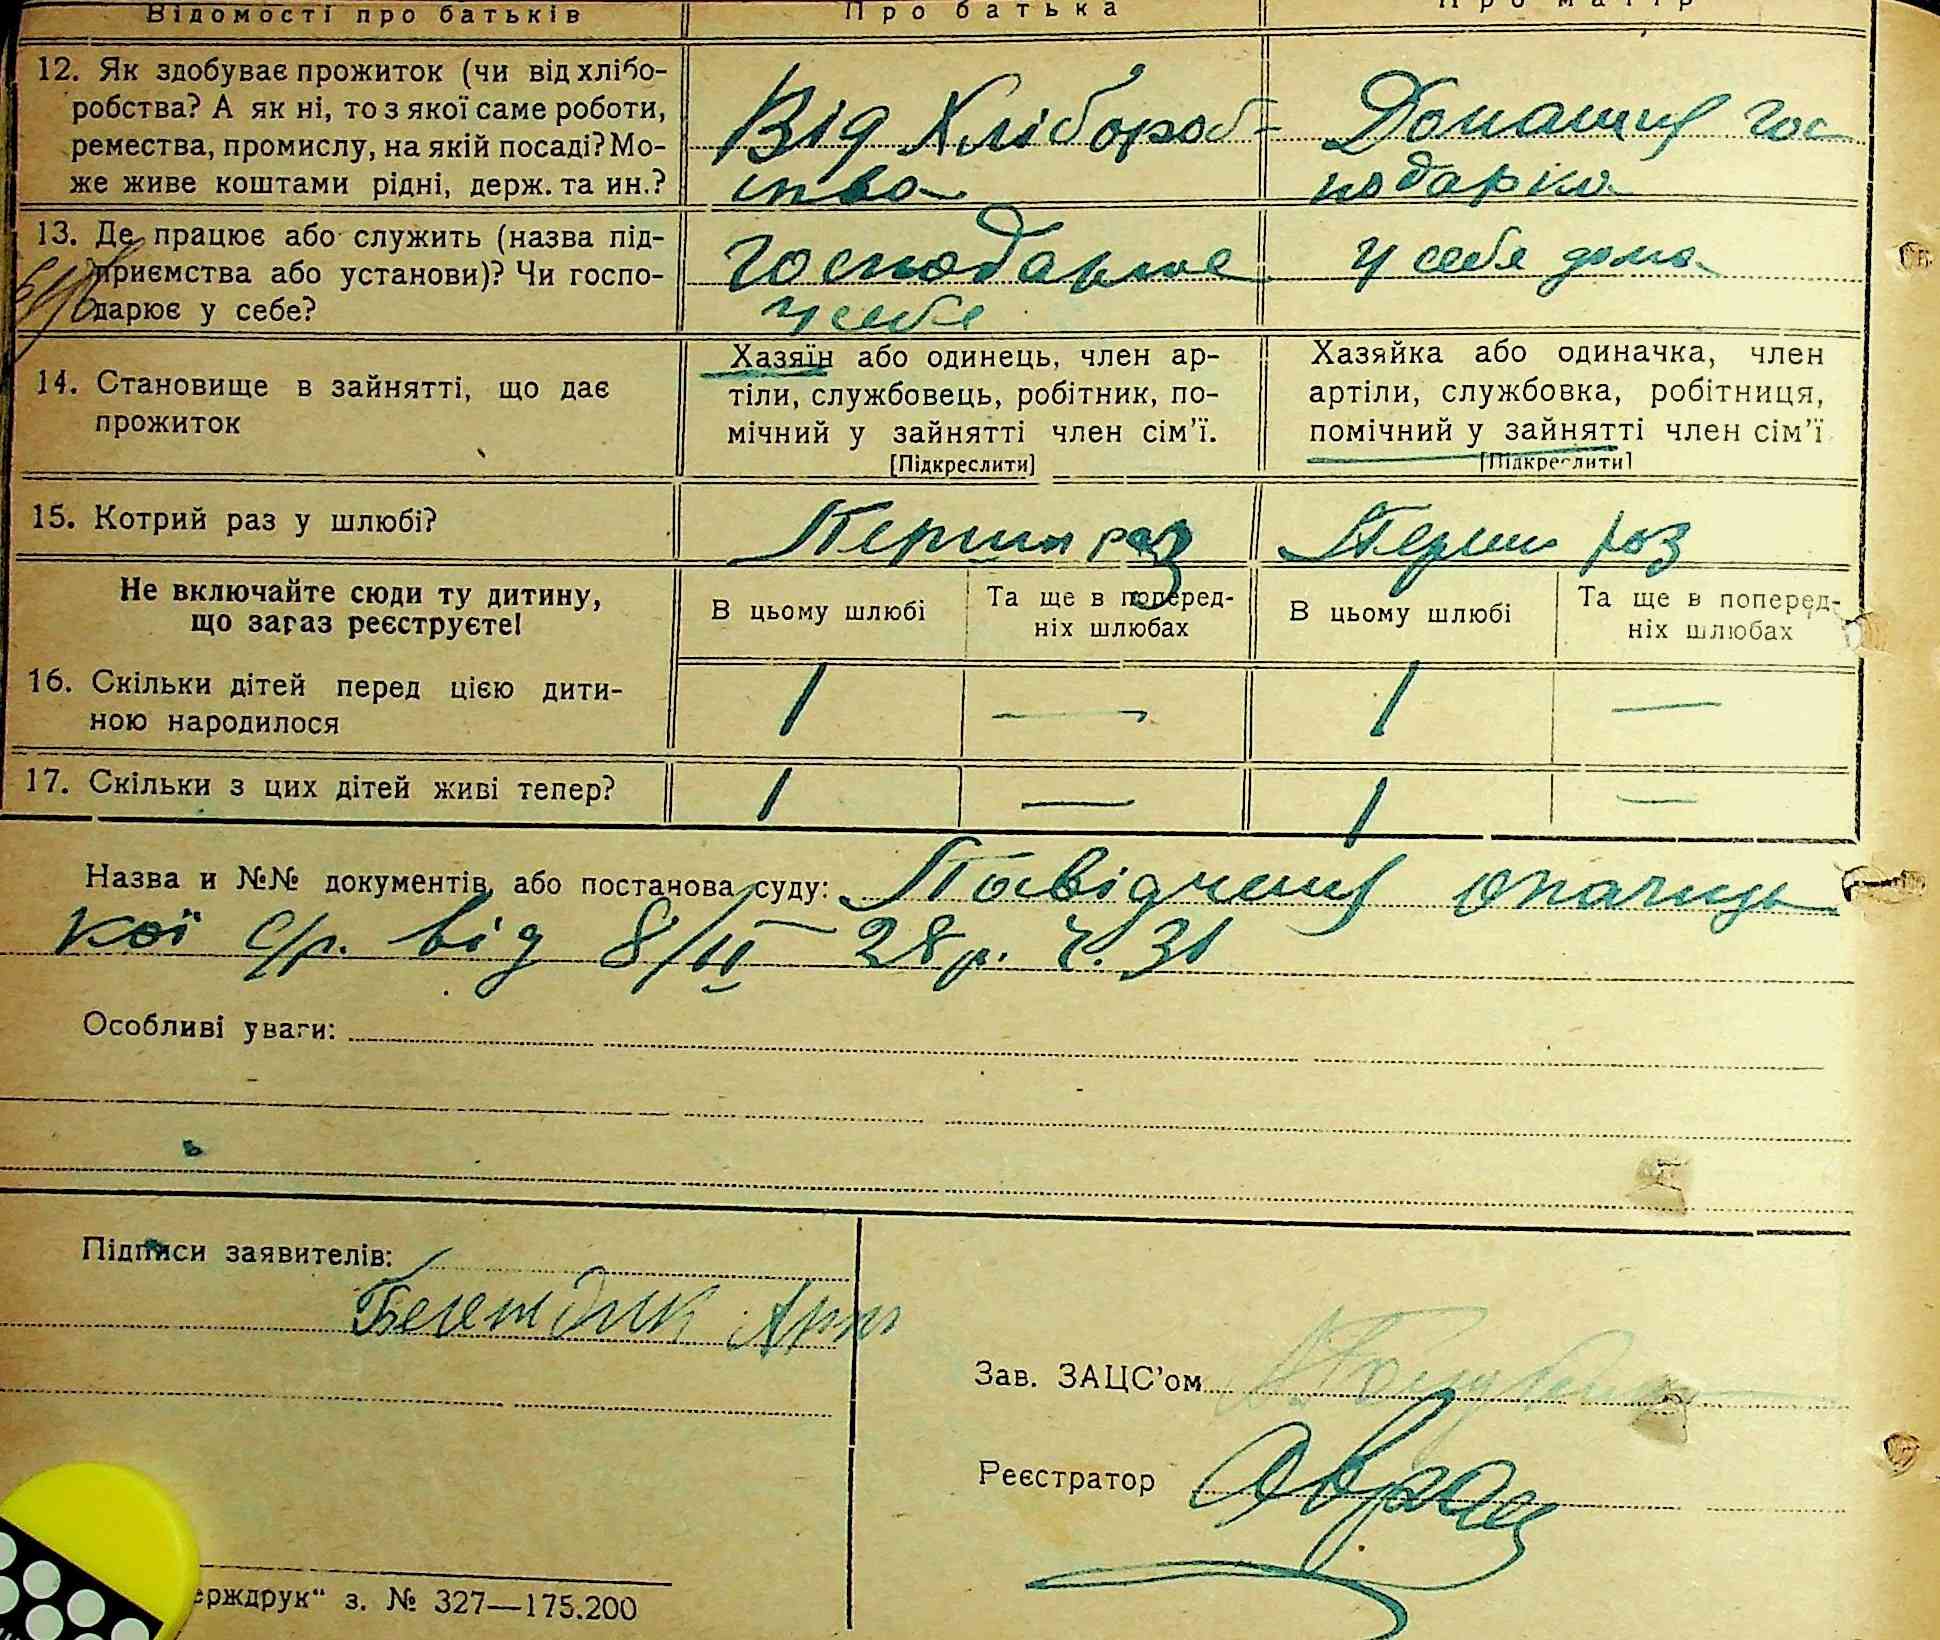 Відомості про батьків
Про батька
Про матір
12. Як здобуває прожиток (чи від хлібо-
робства? А як ні, то з якої саме роботи,
ремества, промислу, на якій посаді? Мо-
же живе коштами рідні, держ. та ин.?
Від Хлібороб-
ства
Домашня гос
подарка
13. Де працює або служить (назва під-
приємства або установи)? Чи госпо-
дарює у себе?
господарює
у себе
у себе дома
14. Становище в зайнятті, що дає
прожиток
Хазяїн або одинець, член ар-
тіли, службовець, робітник, по-
мічний у зайнятті член сім'ї.
[Підкреслити]
Хазяйка або одиначка, член
артіли, службовка, робітниця,
помічний у зайнятті член сім'ї
[Підкреслити]
15. Котрий раз у шлюбі?
Перший раз
Перший раз
Не включайте сюди ту дитину,
що зараз реєструєте!
В цьому шлюбі
Та ще в поперед-
ніх шлюбах
В цьому шлюбі
Та ще в поперед-
ніх шлюбах
16. Скільки дітей перед цією дити-
ною народилося
1 — 1 —
17. Скільки з цих дітей живі тепер?
1 — 1 —
Назва и №№ документів, або постанова суду: Посвідчення
кої с/р. від 8/II 28 р. ч. 31
Особливі уваги:
Підписи заявителів:
Зав. ЗАЦС'ом
Реєстратор
ерждрук“ з. № 327—175.200